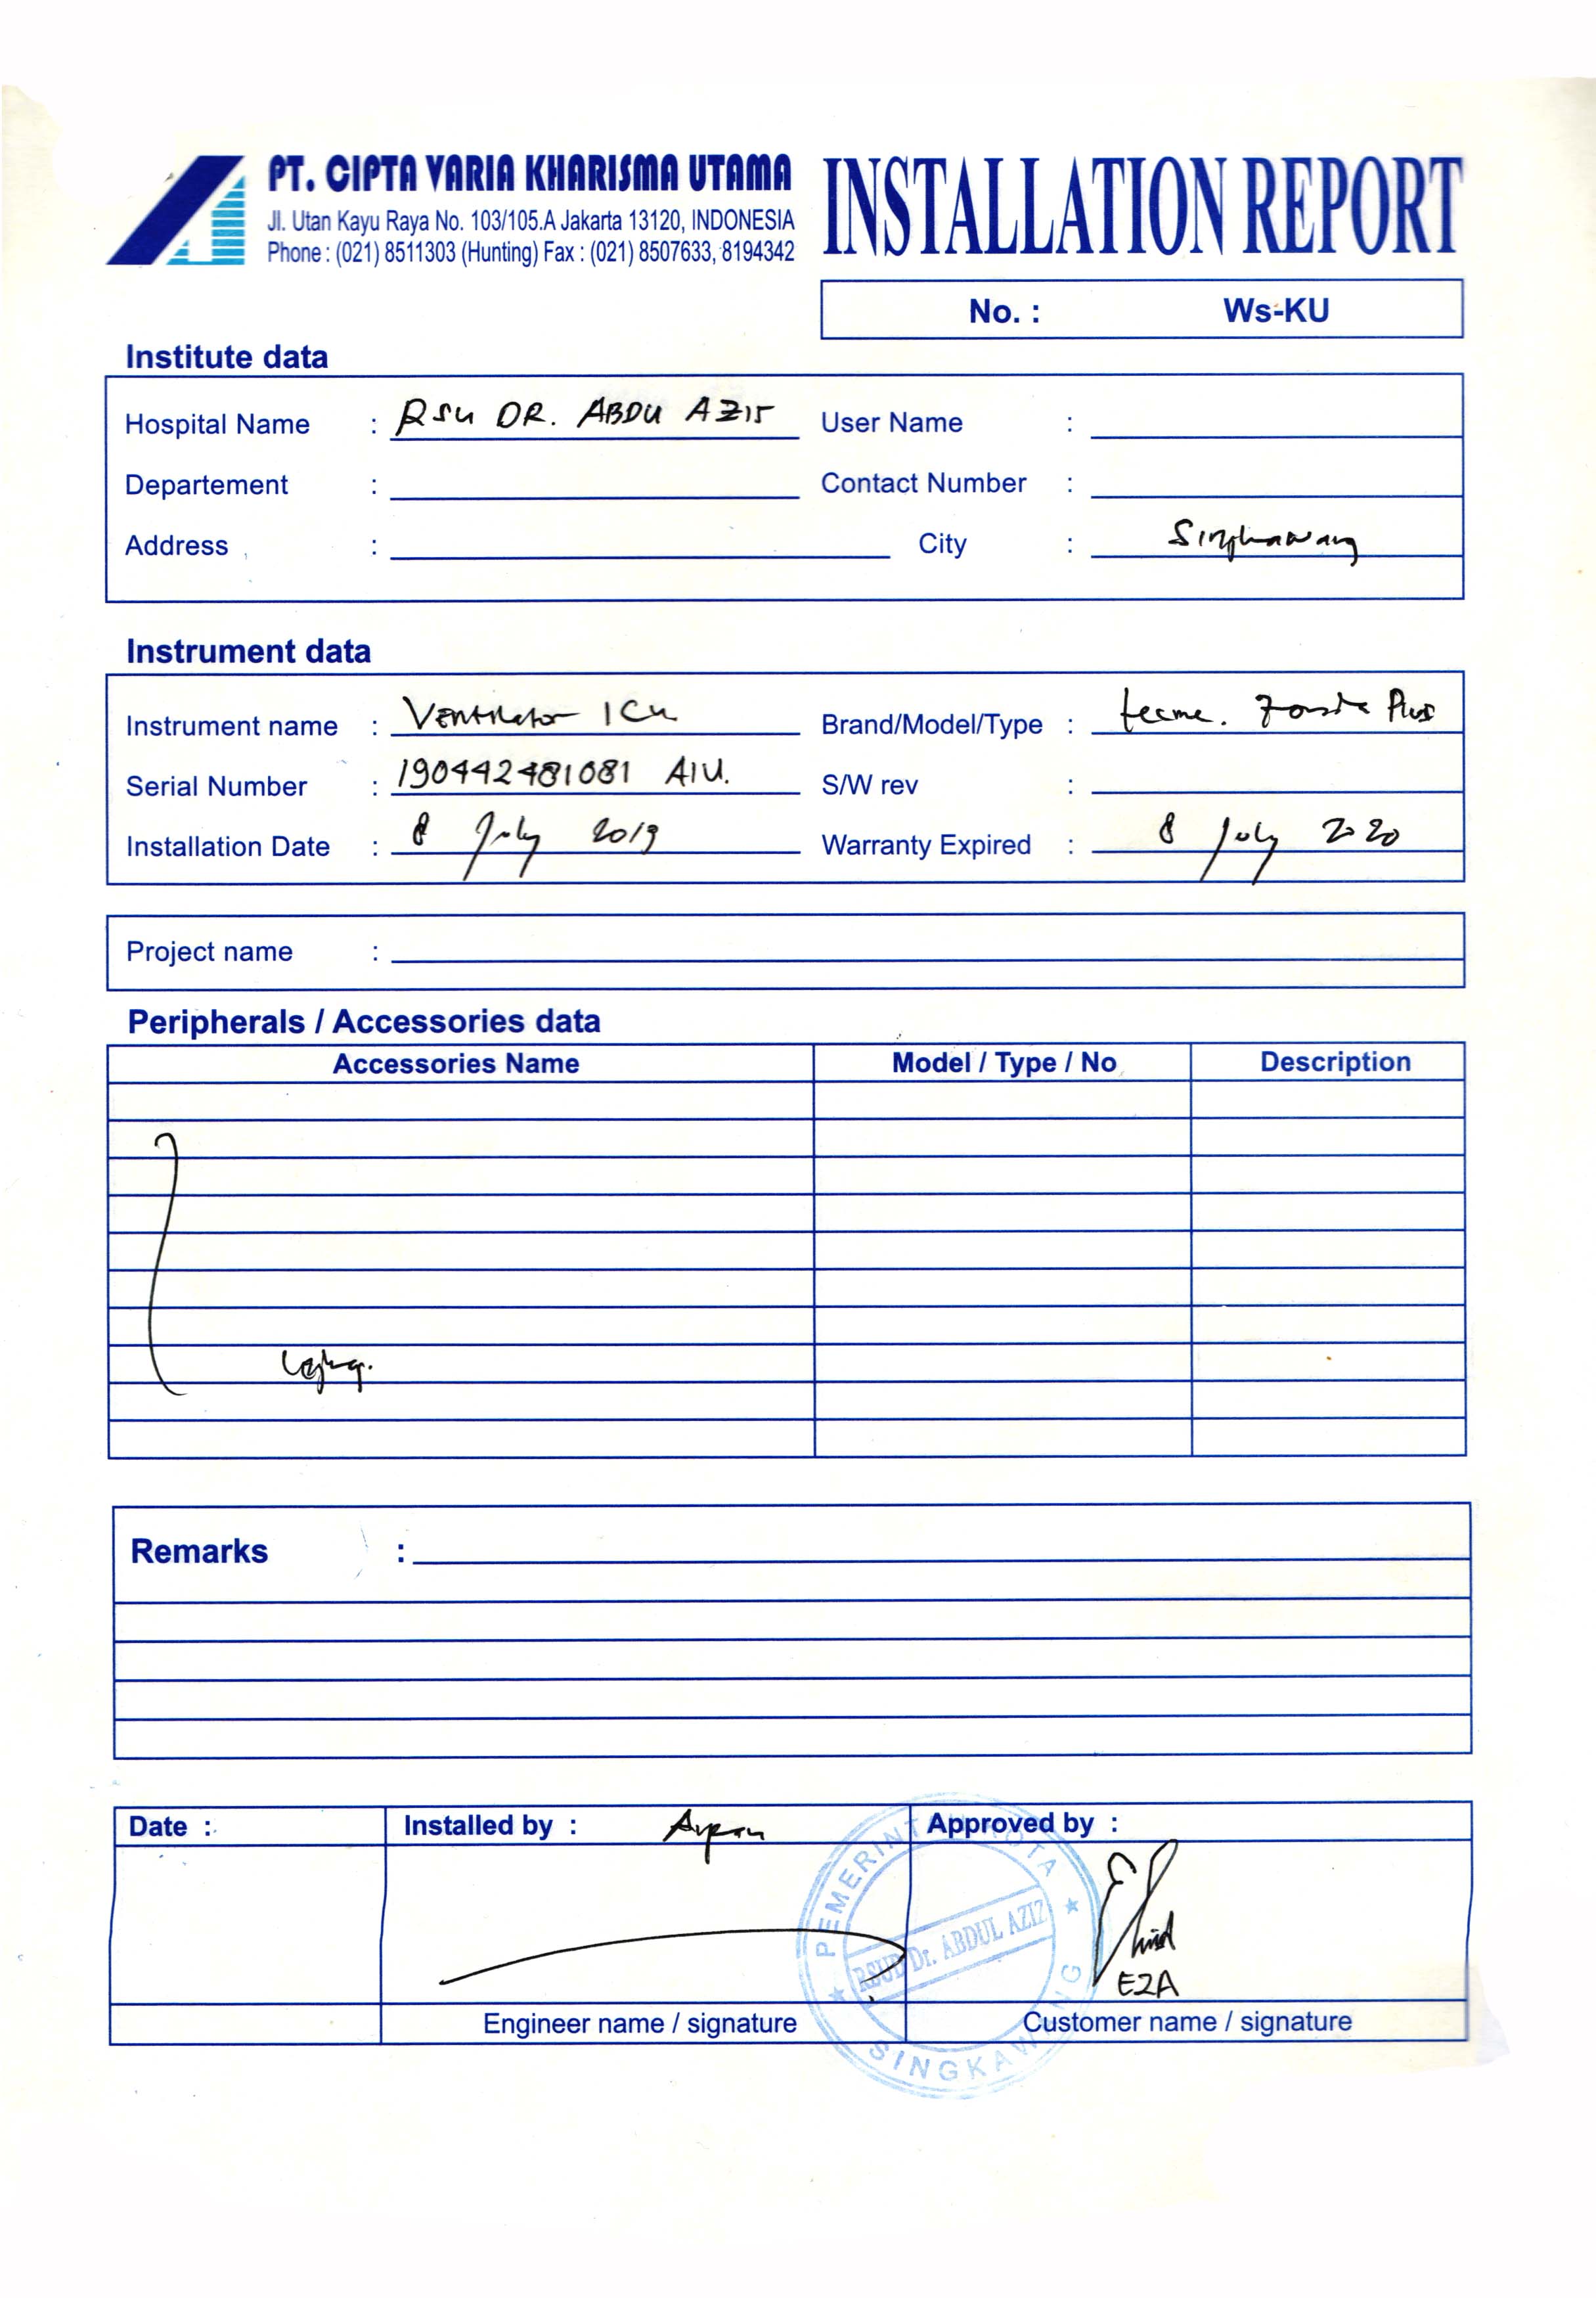 PT. CIPTA VARIA KHARISMA UTAMA
Jl. Utan Kayu Raya No. 103/105.A Jakarta 13120, INDONESIA
Phone : (021) 8511303 (Hunting) Fax : (021) 8507633, 8194342
INSTALLATION REPORT
No. : Ws-KU
Institute data
Hospital Name : RSU DR. ABDU AZIS User Name :
Departement : Contact Number :
Address : City : Singkawang
Instrument data
Instrument name : Ventilator ICU Brand/Model/Type : tecme. Plus
Serial Number : 190442481081 AIU. S/W rev :
Installation Date : 8 July 2019 Warranty Expired : 8 July 2020
Project name :
Peripherals / Accessories data
Accessories Name Model / Type / No Description
Remarks :
Date : Installed by : Approved by :
PEMERINTAH KOTA
RSUD Dr. ABDUL AZIZ
SINGKAWANG
EZA
Engineer name / signature Customer name / signature